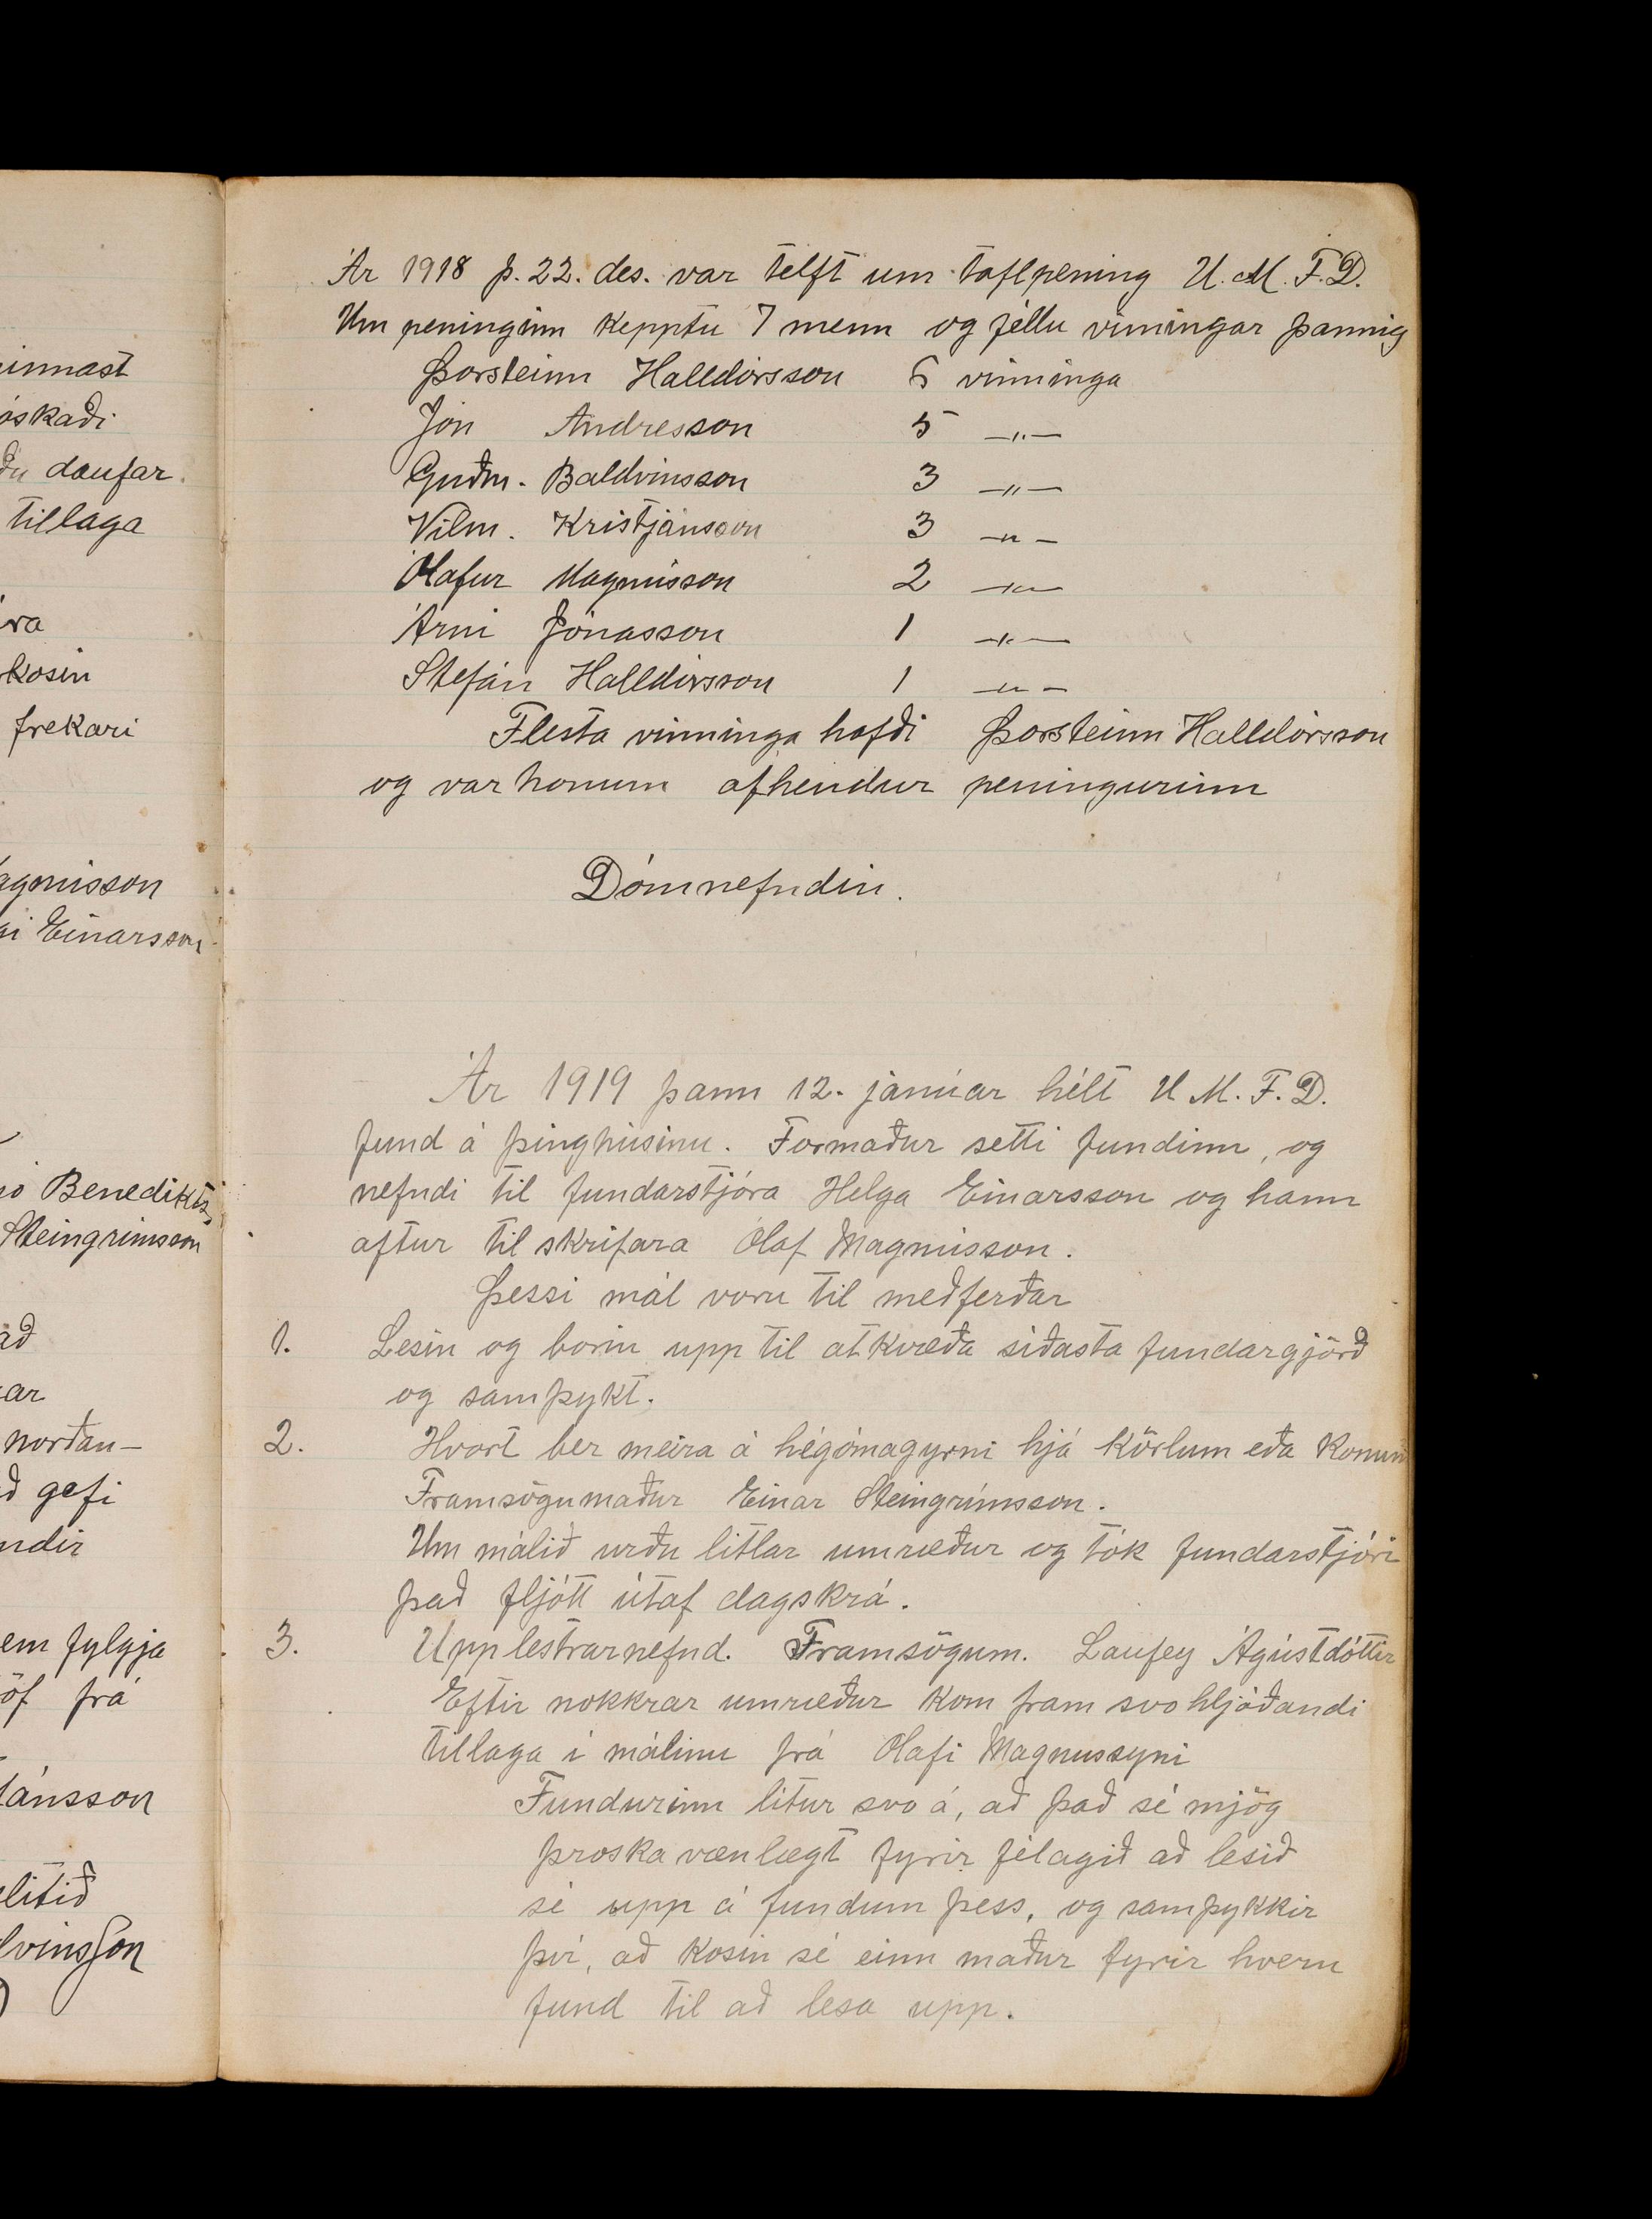 innast
óskaði
ðu daufar
tillaga
ra
kosin
frekari
agnússon
gi Einarsson
Benedikts
Steingrímsson
að
ar
norðan-
ð gefi
ndir
em fylgja
öf frá
jánsson
litið
lvinsson
Ár 1918 þ. 22. des. var telft um taflpening U. M. F. D.
Um peninginn kepptu 7 menn og féllu vinningar þannig
Þorsteinn Halldórsson 6 vinninga
Jón Andresson 5 —„—
Guðm. Baldvinsson 3 —„—
Vilm. Kristjánsson 3 —„—
Ólafur Magnússon 2 —„—
Árni Jónasson 1 —„—
Stefán Halldórsson 1 —„—
Flesta vinninga hafði Þorsteinn Halldórsson
og var honum afhendur peningurinn
Dómnefndin.
Ár 1919 þann 12. janúar hélt U M. F. D.
fund á þinghúsinu. Formaður setti fundinn, og
nefndi til fundarstjóra Helga Einarsson og hann
aftur til skrifara Ólaf Magnússon.
Þessi mál voru til meðferðar
1. Lesin og borin upp til atkvæða síðasta fundargjörð
og samþykt.
2. Hvort ber meira á hégómagyrni hjá körlum eða konum
Framsögumaður Einar Steingrímsson.
Um málið urðu litlar umræður og tók fundarstjóri
það fljótt útaf dagskrá.
3. Upplestrarnefnd. Framsögum. Laufey Ágústdóttir
Eftir nokkrar umræður kom fram svo hljóðandi
tillaga í málinu frá Ólafi Magnussyni
Fundurinn lítur svo á, að það sé mjög
þroska vænlegt fyrir félagið að lesið
sé upp á fundum þess, og samþykkir
því, að kosin sé einn maður fyrir hvern
fund til að lesa upp.